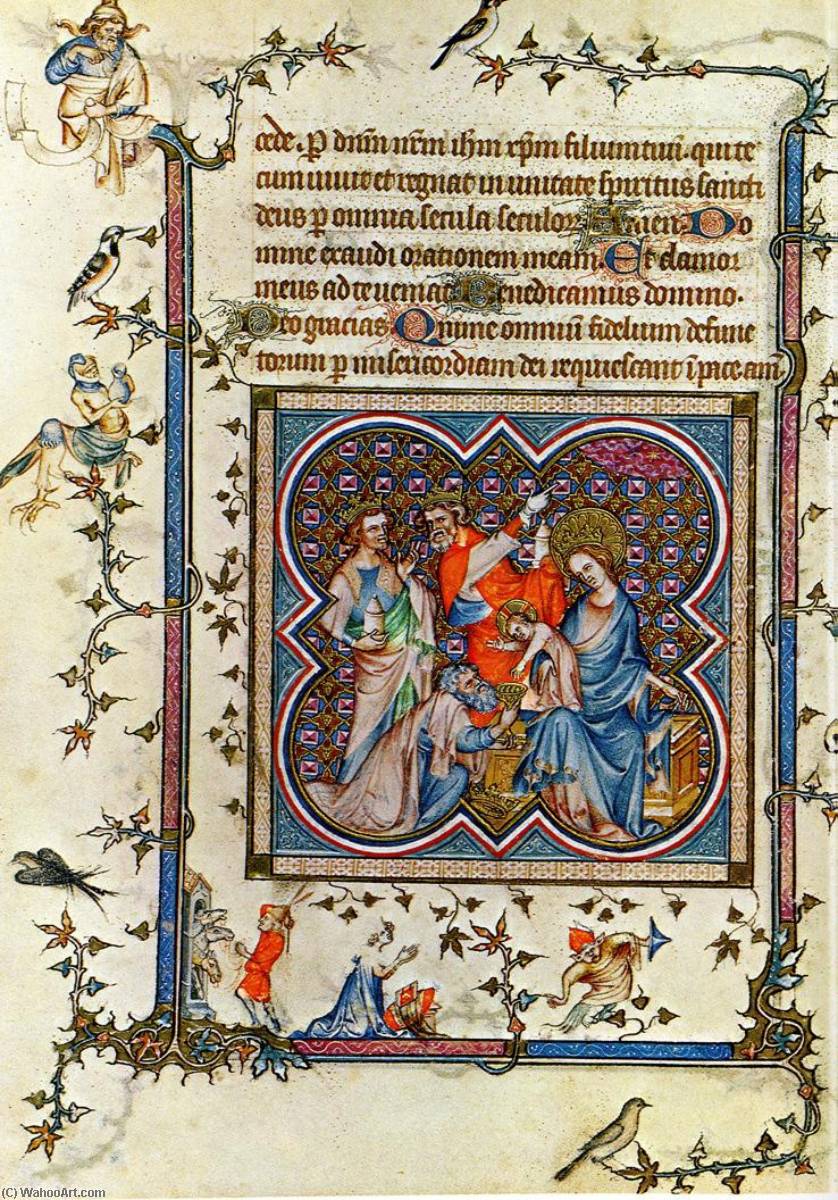 cede. P dnm nrm ihm xpm filium tuū. qui te
cum uiuit et regnat in unitate spiritus sancti
deus p omnia secula seculor Amen. Do
mine exaudi orationem meam. Et clamor
meus ad te ueniat Benedicamus domino.
Deo gracias Qnime omniū fidelium defunc
torum p misericordiam dei requiescant ī pace. am
(C) WahooArt.com